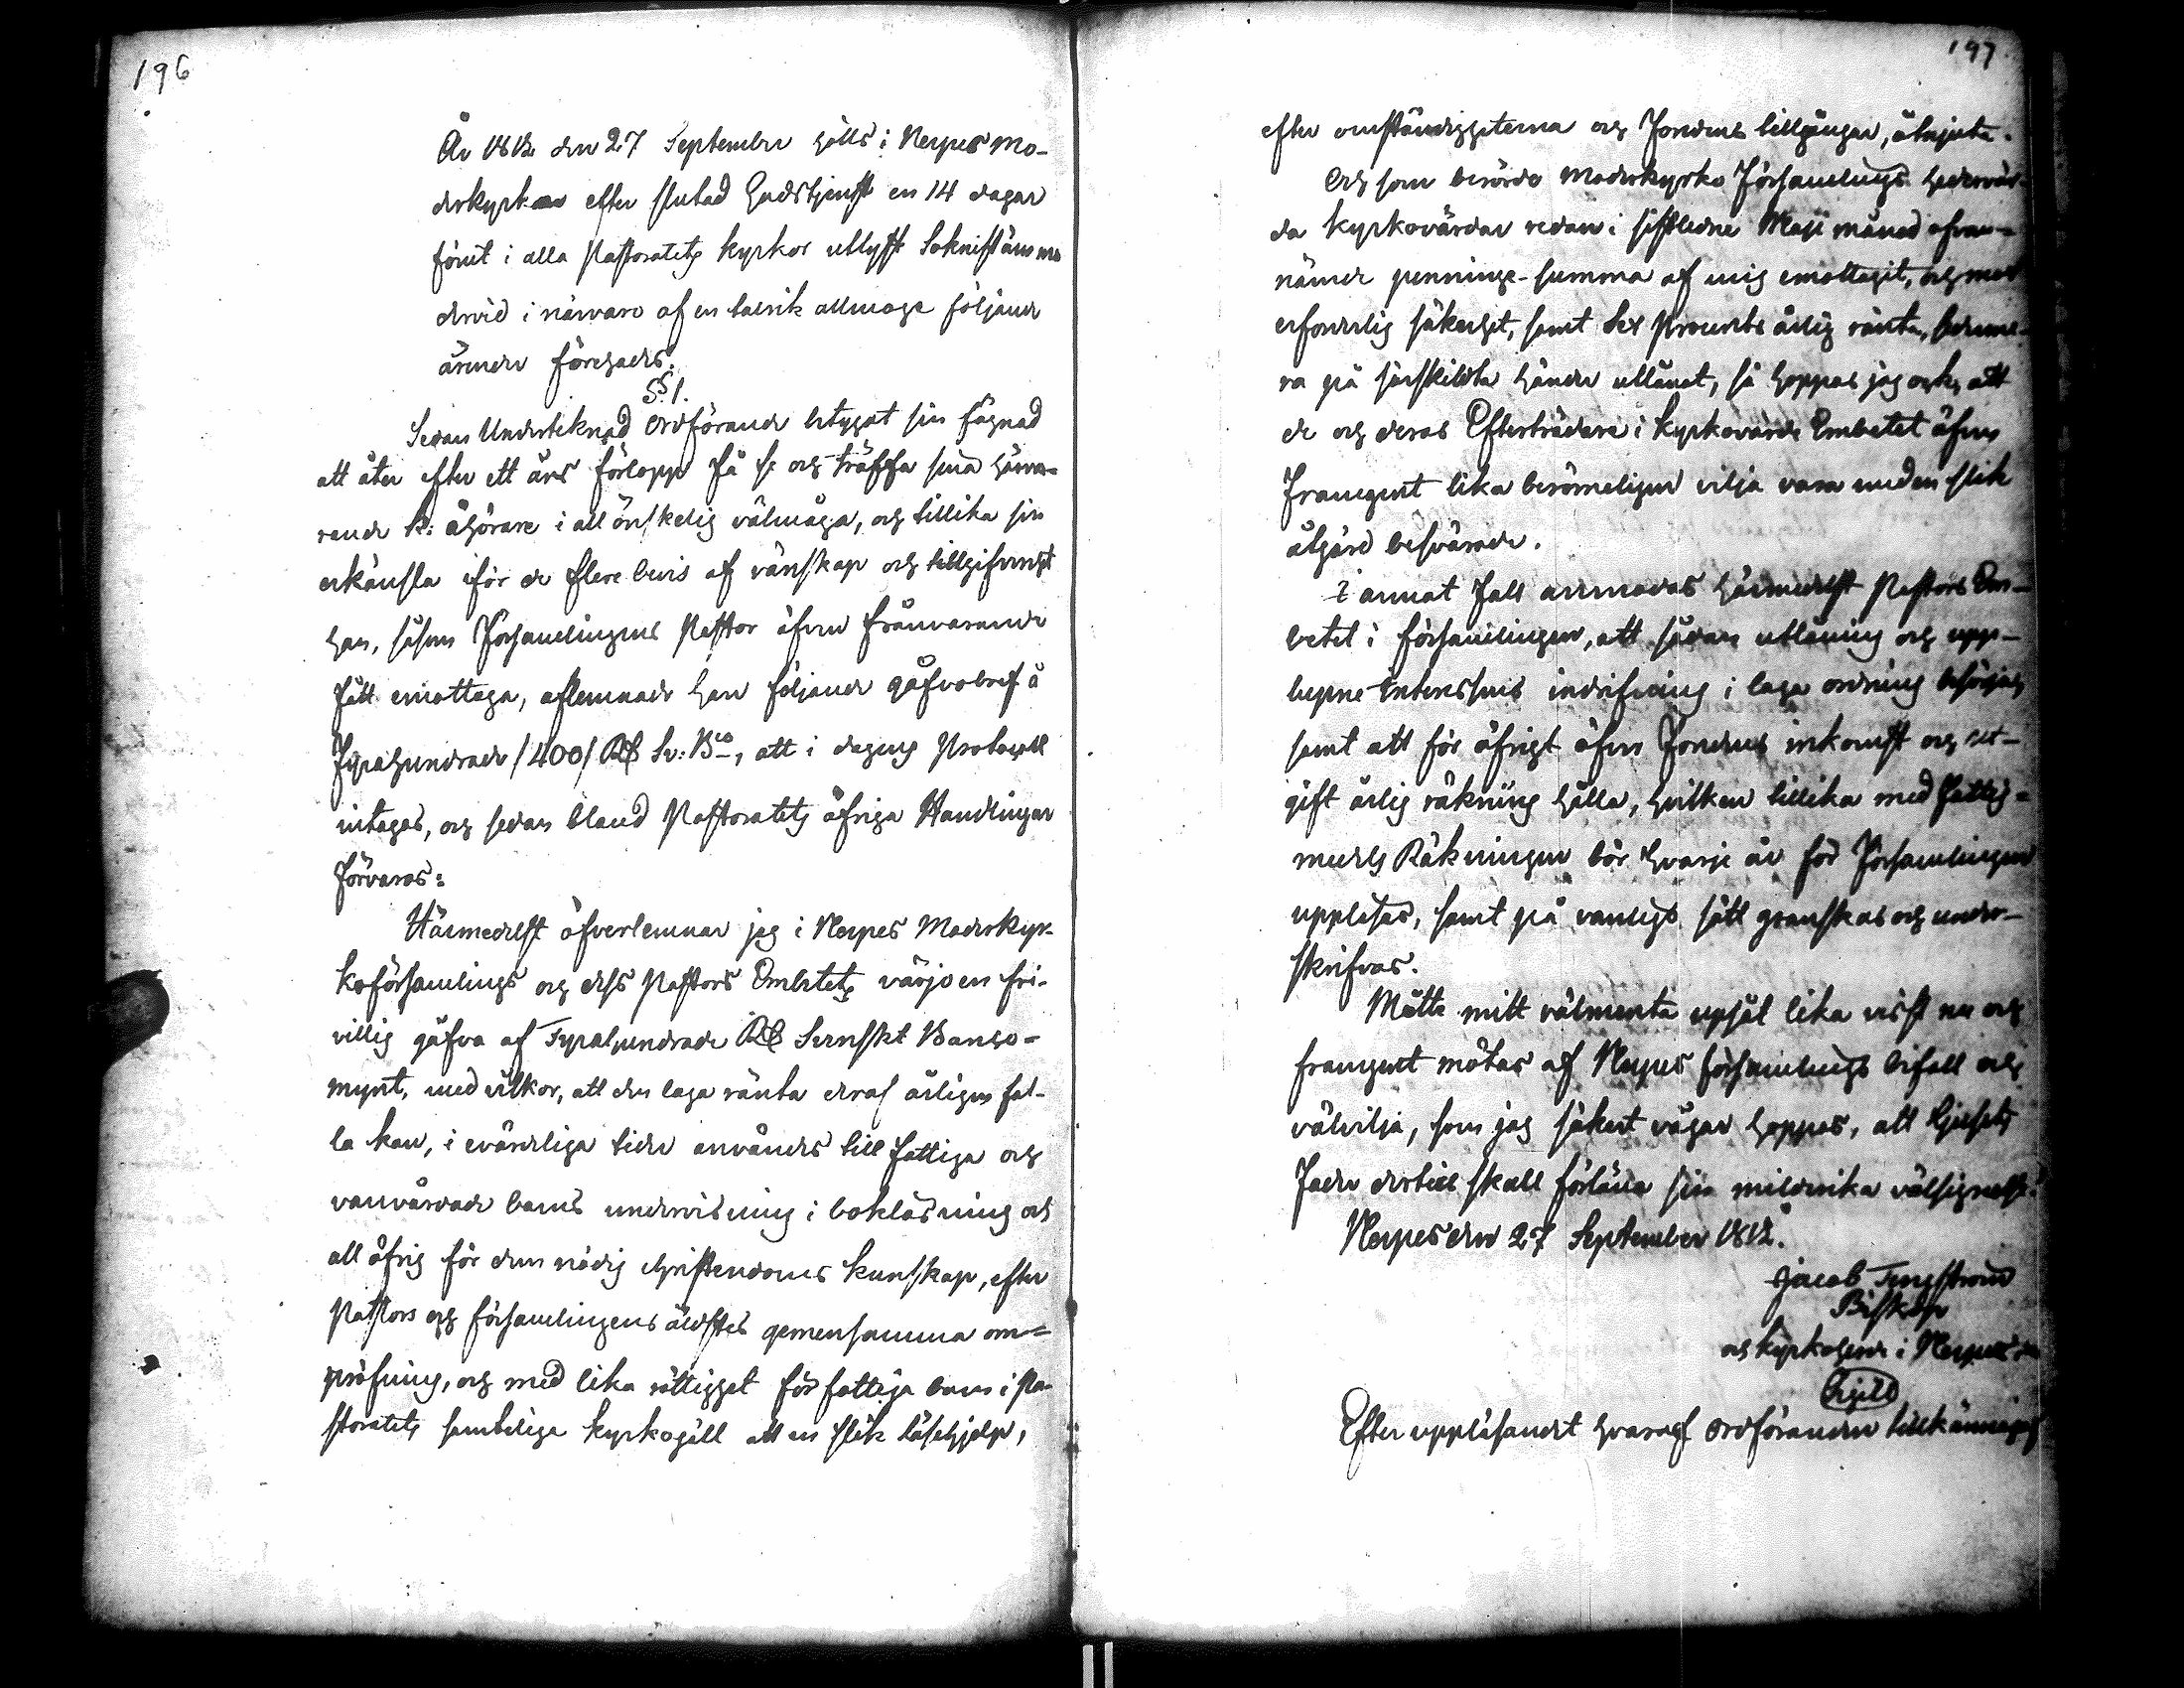 196
År 1812 den 27 September hölls i Nerpes mo-
derkyrkan efter slutad Gudstjenst en 14 dagar
förut i alla Pastoratets kyrkor utlyst Soknestämma
dervid i närvaro af en talrik allmoge följande
ärender förehades.
§ 1.
Sedan Undertecknad Ordförande betygat sin fägnad
att åter efter ett års förlopp få se och träffa sina härva-
rande k: åhörare i all önskelig välmåga, och tillika sin
erkänsla för de flere bevis af vänskap och tillgifvenhet
han, såsom Församlingens Pastor äfven frånvarande
fått emottaga, aflemnade han följande gåfvobref å
Fyrahundrade /400/ Rd Sv: Bco, att i dagens Protocoll
intagas, och sedan bland Pastoratets öfriga Handlingar
förvaras:
Härmedelst öfverlemnar jag i Nerpes Moderkyr-
koförsamlings och dess Pastors Embetets värjo en fri-
villig gåfva af Fyrahundrade Rd Svenskt Banco-
mynt, med vilkor, att den laga ränta deraf årligen fal-
la kan, i evärdliga tider användes till fattiga och
vanvårdade barns undervisning i bokläsning och
all öfrig för dem nödig christendoms kunskap, efter
Pastors och församlingens äldstes gemensamma om-
pröfning, och med lika rättighet för fattiga barn i Pa-
storatets samtelige kyrkogäll att en slik läsehjelp,
197
efter omständigheterna och Fondens tillgångar, åtnjuta.
Och som berörde Moderkyrko Församlings hedervär-
da kyrkovärdar redan i sistledne Maji månad ofvan-
nämde penninge-summa af mig emottagit, och mot
erforderlig säkerhet, samt Sex Procents årlig ränta, densam-
ma på särskildta händer utlånat, så hoppas jag ock, att
de och deras Efterträdare i Kyrkovärde Embetet äfven
framgent lika berömeligen vilja vara med en slik
åtgärd besvärade.
I annat fall anmodas härmedelst Pastors Em-
betet i församlingen, att sådan utlåning och upp-
lupne Intressens indrifvning i laga ordning besörja,
samt att för öfrigt öfver Fondens inkomst och ut-
gift årlig räkning hålla, hvilken tillika med Fattig-
medels Räkningen bör hvarje år för Församlingen
uppläsas, samt på vanligt sätt granskas och under-
skrifvas.
Måtte mitt välmenta upsåt lika visst nu och
framgent mötas af Nerpes församlings bifall och
välvilja, som jag säkert vågar hoppas, att ljusets
Fader dertill skall förläna sin milderika välsignelse.
Nerpes den 27 September 1812.
Jacob Tengström
Biskop
och kyrkoherde i Nerpes
Sigill
Efter uppläsandet hvaraf Ordföranden tillkännagaf